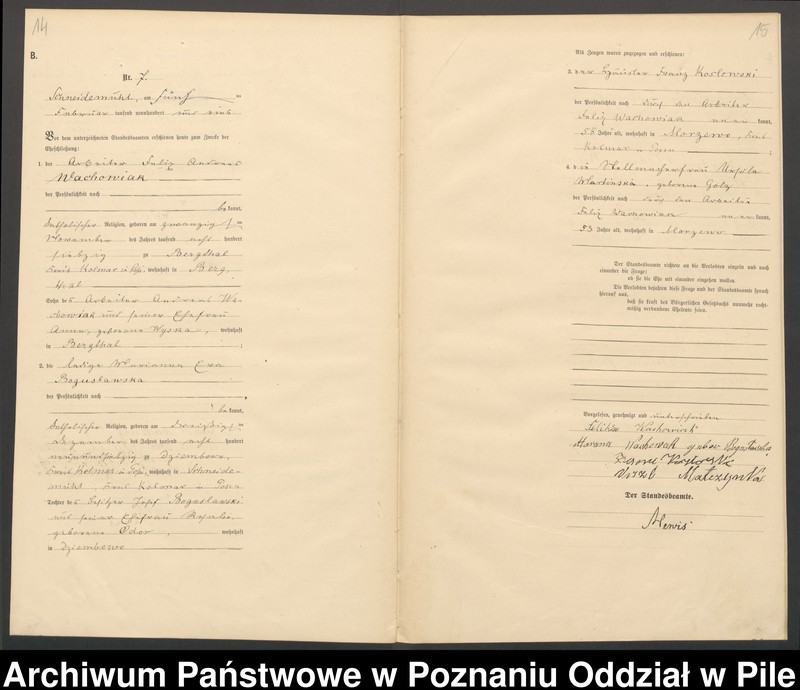 14
B.
Nr. 7.
Schneidemühl, am fünf ten
Februar tausend neunhundert und eins
Vor dem unterzeichneten Standesbeamten erschienen heute zum Zwecke der
Eheschließung:
1. der Arbeiter Felix Andreas
Wachowiak
der Persönlichkeit nach
bekannt,
katholischer Religion, geboren am zwanzigsten
November des Jahres tausend acht hundert
siebzig zu Bergthal
Kreis Kolmar i. Pos., wohnhaft in Berg,
thal
Sohn des Arbeiter Andreas Wa-
chowiak und seiner Ehefrau
Anna, geborene Wyska, wohnhaft
in Bergthal ;
2. die ledige Marianna Eva
Bogusławska
der Persönlichkeit nach
bekannt,
katholischer Religion, geboren am dreißigsten
Dezember des Jahres tausend acht hundert
neunundsiebzig zu Dziembowo,
Kreis Kolmar i. Pos., wohnhaft in Schneide-
mühl, Kreis Kolmar in Posen
Tochter des Besitzer Josef Bogusławski
und seiner Ehefrau
geborene Odor, wohnhaft
in Dziembowo
15
Als Zeugen waren zugezogen und erschienen:
3. der Häusler Franz Koslowski
der Persönlichkeit nach durch den Arbeiter
Felix Wachowiak anerkannt,
55 Jahre alt, wohnhaft in Morzewo, Kreis
Kolmar in Posen ;
4. die Stellmacherfrau Ursula
geborene Golz
der Persönlichkeit nach durch den Arbeiter
Felix Wachowiak anerkannt,
53 Jahre alt, wohnhaft in Morzewo
Der Standesbeamte richtete an die Verlobten einzeln und nach
einander die Frage:
ob sie die Ehe mit einander eingehen wollen.
Die Verlobten bejahten diese Frage und der Standesbeamte sprach
hierauf aus,
daß sie kraft des Bürgerlichen Gesetzbuchs nunmehr recht-
mäßig verbundene Eheleute seien.
Vorgelesen, genehmigt und unterschrieben
Feliks Wachowiak
Wachowiak Bogusławska
Der Standesbeamte.
Mewis
Archiwum Państwowe w Poznaniu Oddział w Pile